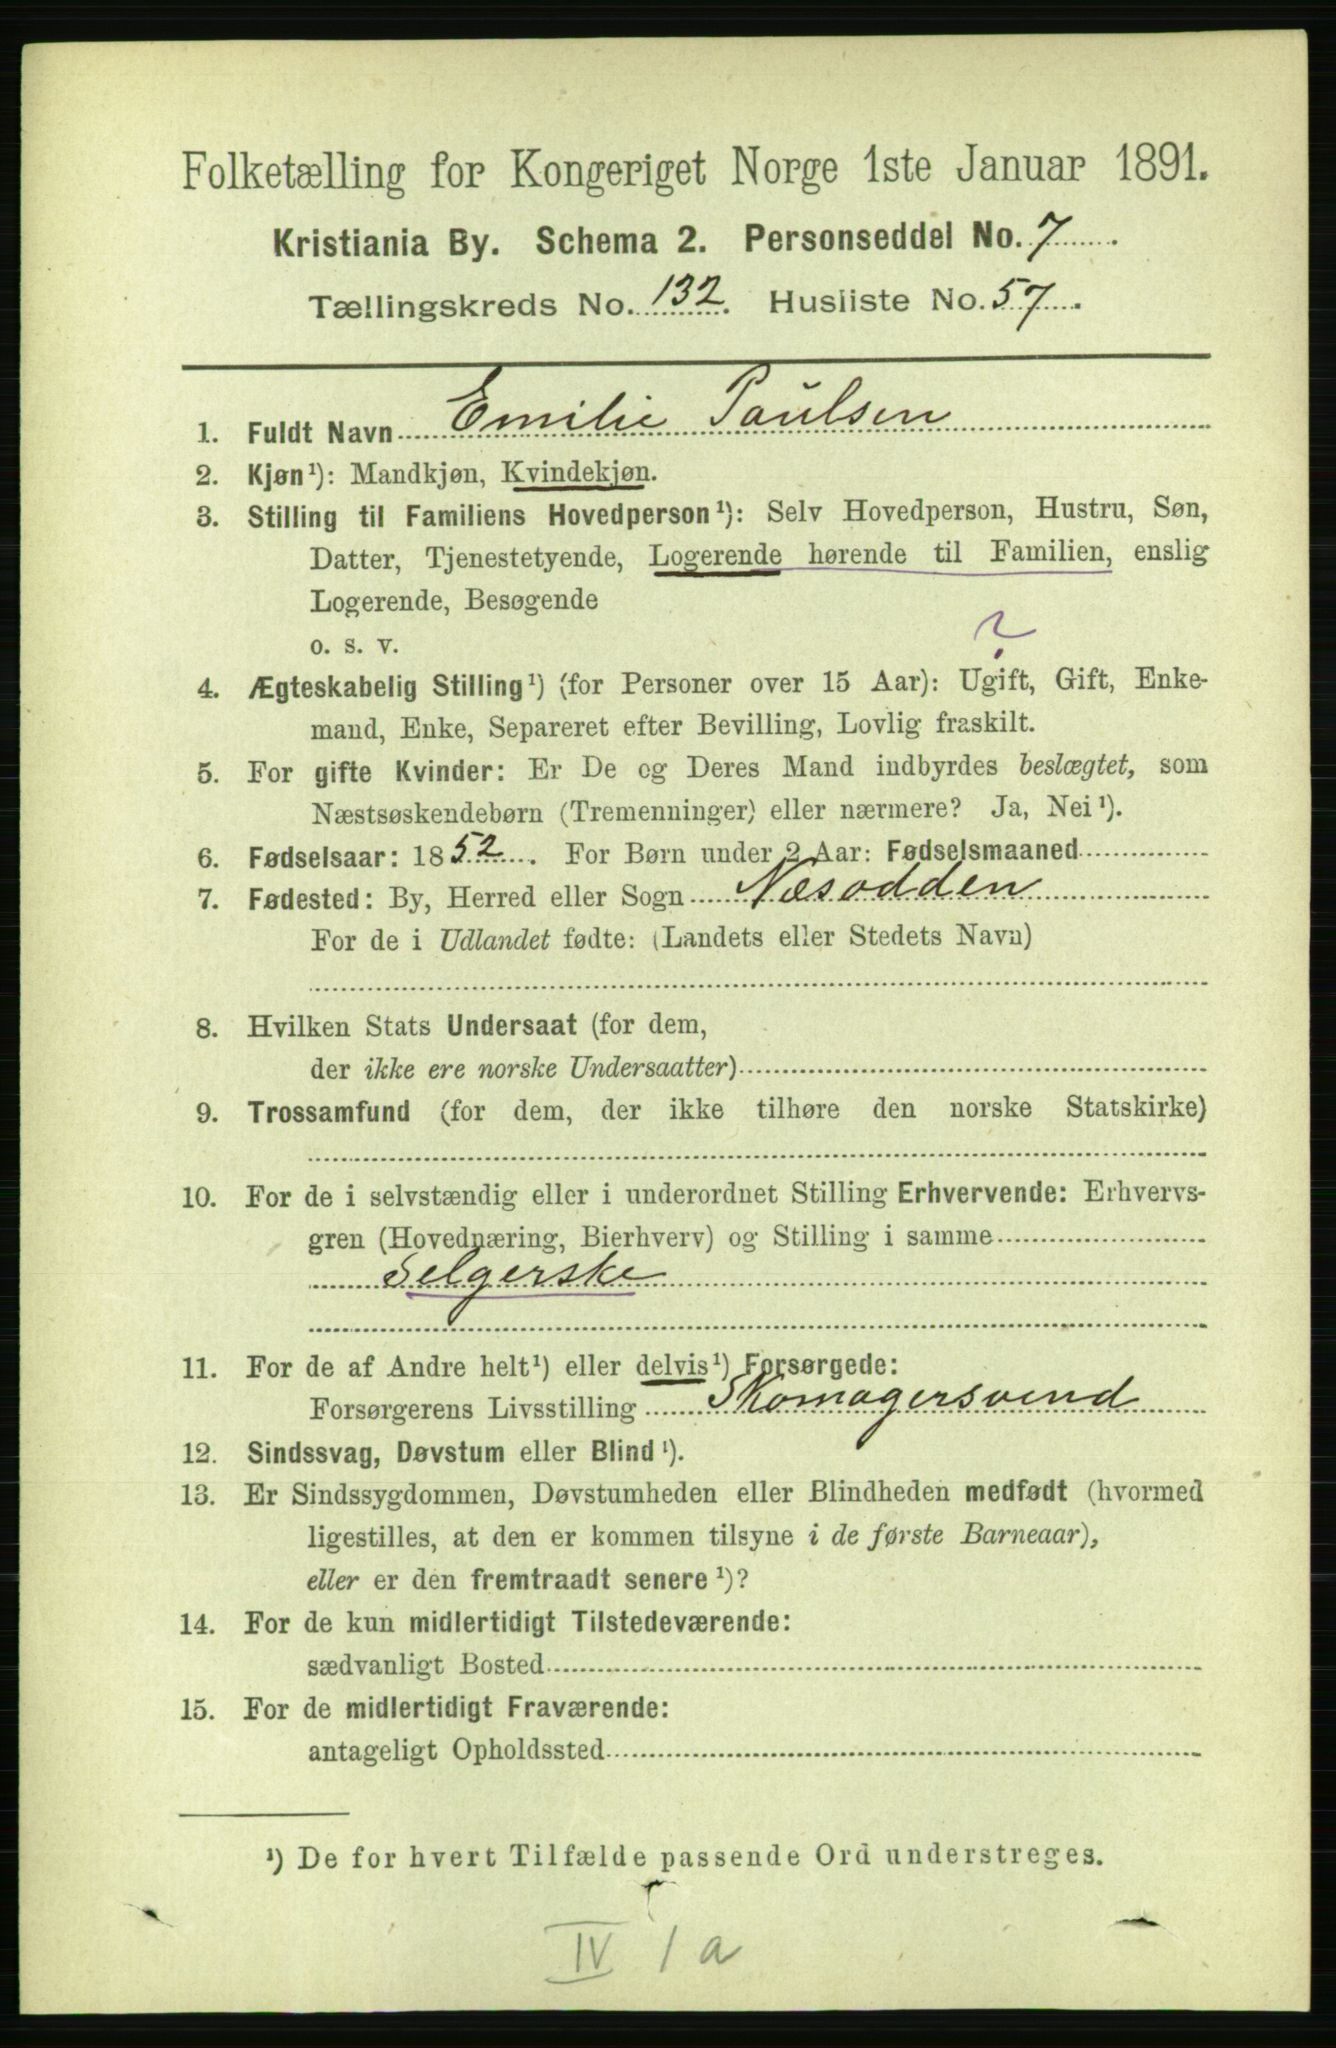 Folketælling for Kongeriget Norge 1ste Januar 1891.
Kristiania By. Schema 2. Personseddel No. 7
Tællingskreds No. 132. Husliste No. 57.
1. Fuldt Navn Emilie Paulsen
2. Kjøn¹): Mandkjøn, Kvindekjøn.
3. Stilling til Familiens Hovedperson¹): Selv Hovedperson, Hustru, Søn,
Datter, Tjenestetyende, Logerende hørende til Familien, enslig
Logerende, Besøgende
o. s. v.
?
4. Ægteskabelig Stilling¹) (for Personer over 15 Aar): Ugift, Gift, Enke-
mand, Enke, Separeret efter Bevilling, Lovlig fraskilt.
5. For gifte Kvinder: Er De og Deres Mand indbyrdes beslægtet, som
Næstsøskendebørn (Tremenninger) eller nærmere? Ja, Nei¹).
6. Fødselsaar: 1852. For Børn under 2 Aar: Fødselsmaaned
7. Fødested: By, Herred eller Sogn Næsodden
For de i Udlandet fødte: (Landets eller Stedets Navn)
8. Hvilken Stats Undersaat (for dem,
der ikke ere norske Undersaatter)
9. Trossamfund (for dem, der ikke tilhøre den norske Statskirke)
10. For de i selvstændig eller i underordnet Stilling Erhvervende: Erhvervs-
gren (Hovednæring, Bierhverv) og Stilling i samme
Selgerske
11. For de af Andre helt¹) eller delvis¹) Forsørgede:
Forsørgerens Livsstilling Skomagersvend
12. Sindssvag, Døvstum eller Blind¹).
13. Er Sindssygdommen, Døvstumheden eller Blindheden medfødt (hvormed
ligestilles, at den er kommen tilsyne i de første Barneaar),
eller er den fremtraadt senere¹)?
14. For de kun midlertidigt Tilstedeværende:
sædvanligt Bosted
15. For de midlertidigt Fraværende:
antageligt Opholdssted
¹) De for hvert Tilfælde passende Ord understreges.
IV 1 a